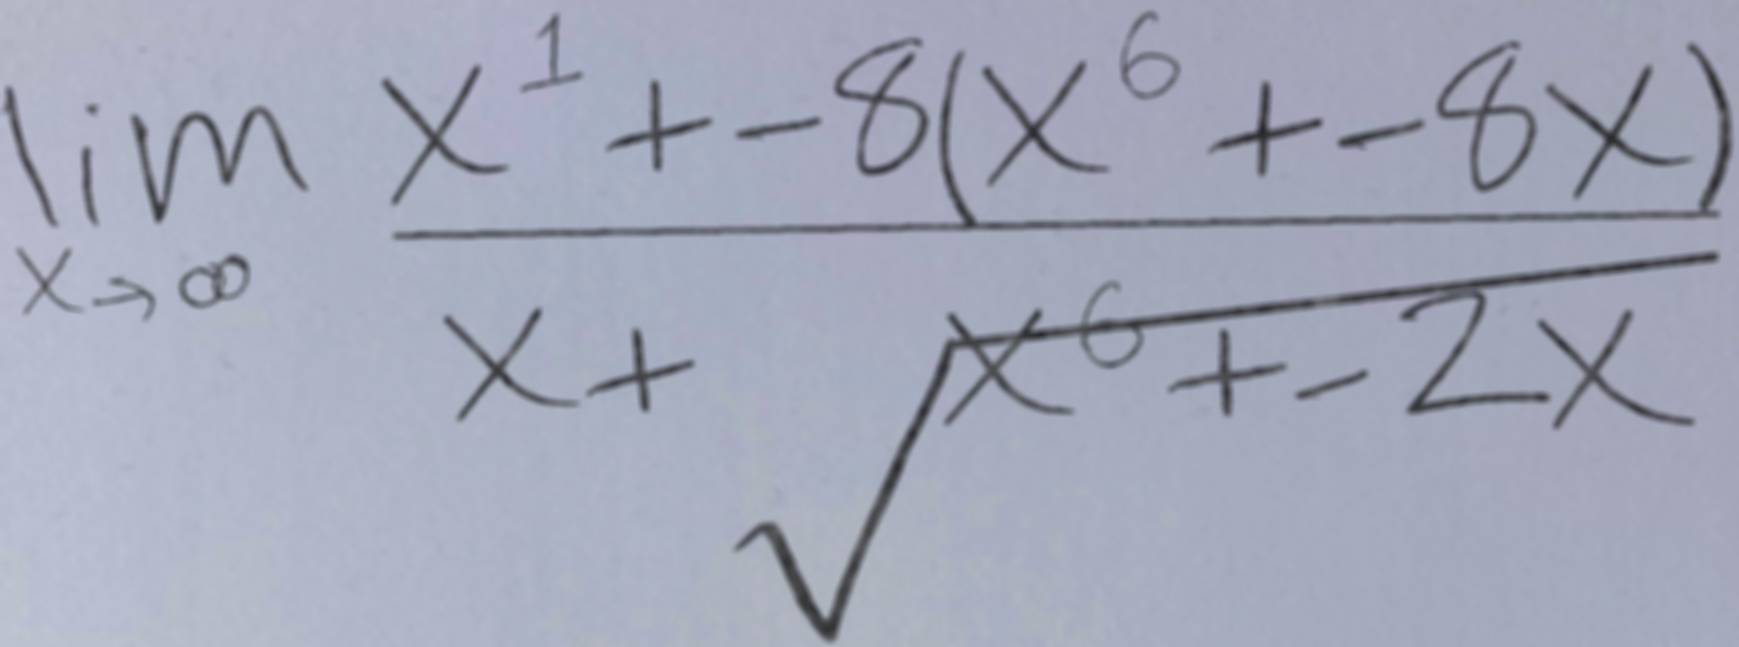 lim x→∞ \frac{x^1 + -8(x^6 + -8x)}{x + \sqrt{x^6 + -2x}}